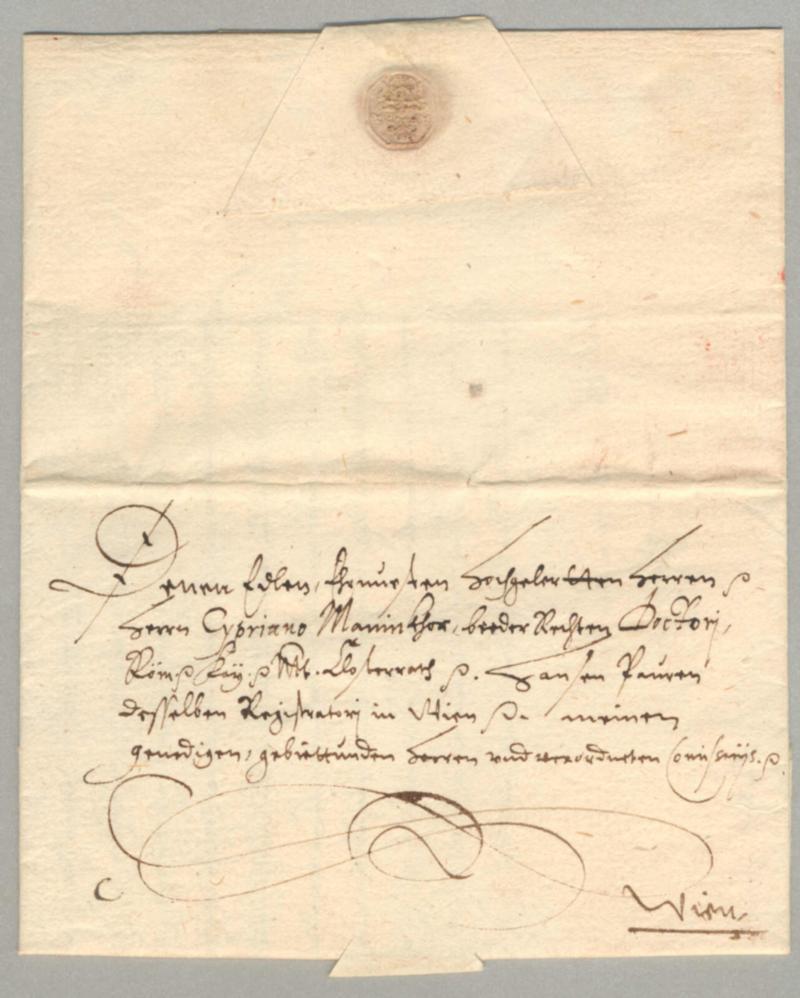 Denen Edlen, Ehrnuesten Hochgelertten Herren
Herrn Cypriano Maninkhor, beeder Rechten Doctori,
Röm Kay: Mt. Closterrath. Hansen Pauren
desselben Registratorj in Wien. meinen
genedigen, gebiettunden Herren vnd verordneten
Wien